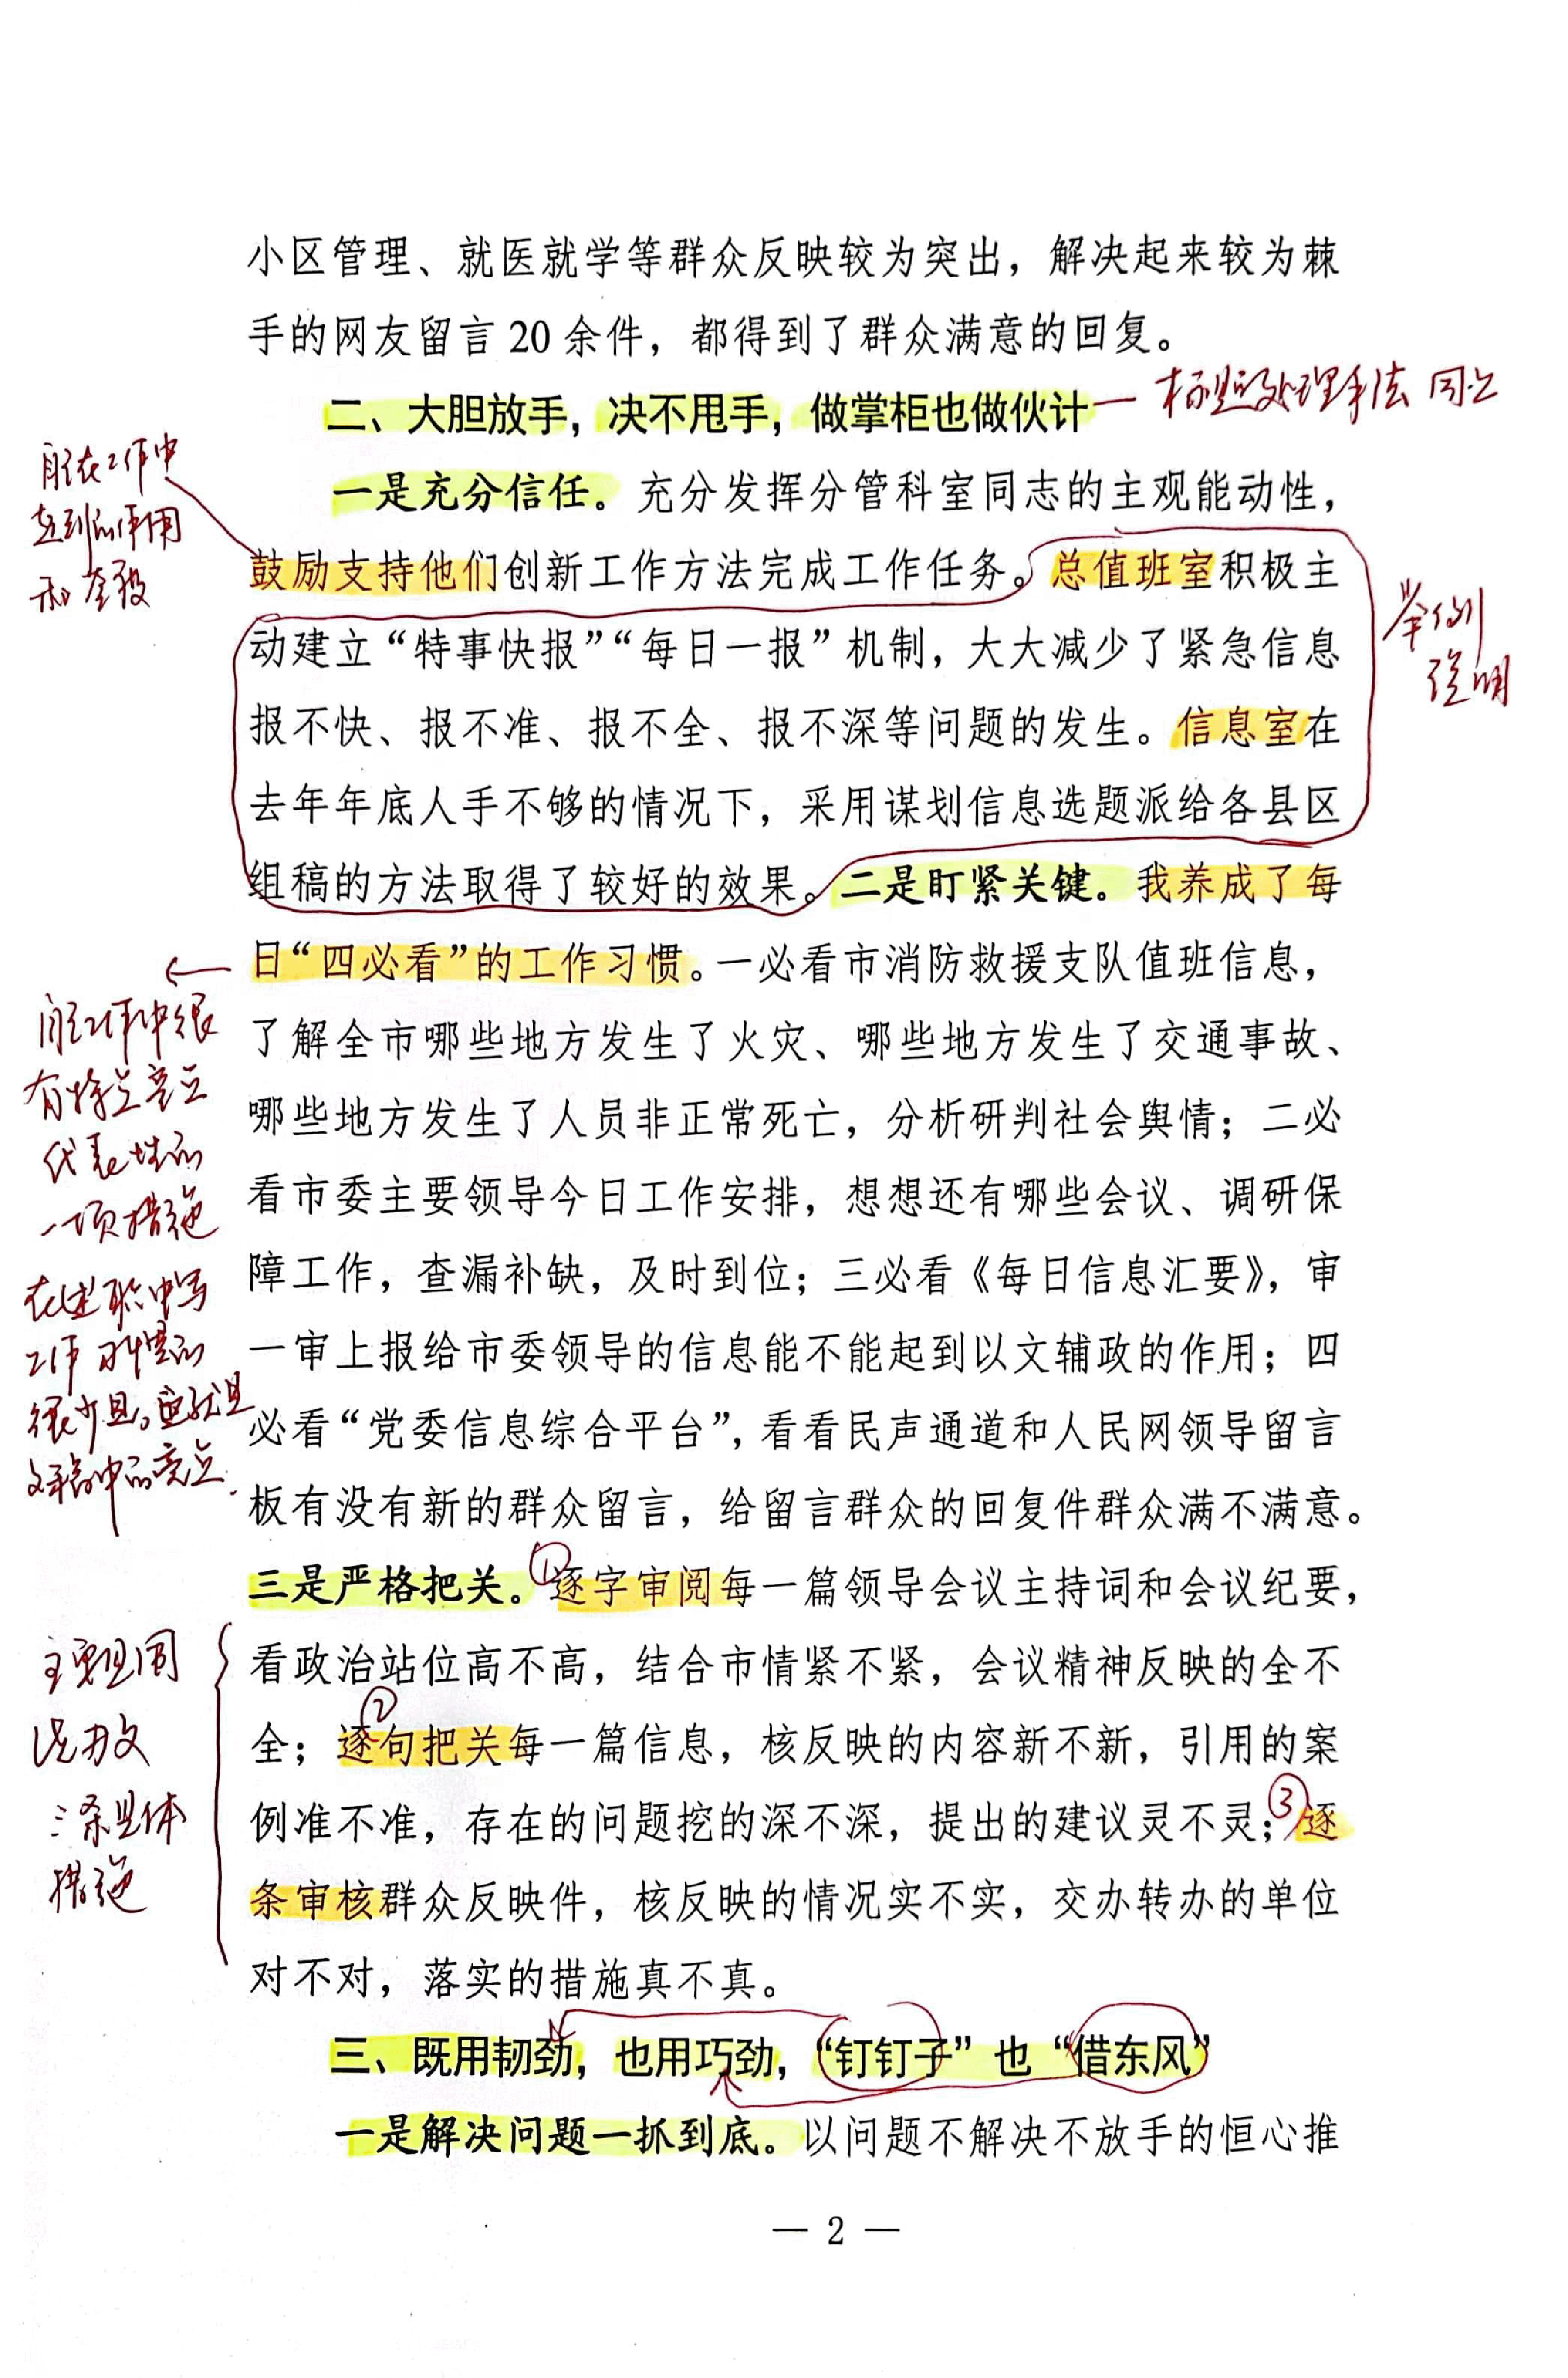 小区管理、就医就学等群众反映较为突出，解决起来较为棘
手的网友留言 20 余件，都得到了群众满意的回复。
二、大胆放手，决不甩手，做掌柜也做伙计
标题处理手法 同上
一是充分信任。充分发挥分管科室同志的主观能动性，
在工作中
起到的作用
和
鼓励支持他们创新工作方法完成工作任务。总值班室积极主
动建立“特事快报”“每日一报”机制，大大减少了紧急信息
举例
说明
报不快、报不准、报不全、报不深等问题的发生。信息室在
去年年底人手不够的情况下，采用谋划信息选题派给各县区
组稿的方法取得了较好的效果。二是盯紧关键。我养成了每
日“四必看”的工作习惯。一必看市消防救援支队值班信息，
了解全市哪些地方发生了火灾、哪些地方发生了交通事故、
哪些地方发生了人员非正常死亡，分析研判社会舆情；二必
看市委主要领导今日工作安排，想想还有哪些会议、调研保
障工作，查漏补缺，及时到位；三必看《每日信息汇要》，审
一审上报给市委领导的信息能不能起到以文辅政的作用；四
必看“党委信息综合平台”，看看民声通道和人民网领导留言
板有没有新的群众留言，给留言群众的回复件群众满不满意。
工作中很
有特点亮点
代表性的
一项措施
在述职中写
工作习惯的
很少见。
文稿中的亮点
三是严格把关。①逐字审阅每一篇领导会议主持词和会议纪要，
看政治站位高不高，结合市情紧不紧，会议精神反映的全不
全；②逐句把关每一篇信息，核反映的内容新不新，引用的案
例准不准，存在的问题挖的深不深，提出的建议灵不灵；③逐
条审核群众反映件，核反映的情况实不实，交办转办的单位
对不对，落实的措施真不真。
主要是围
办文
三条具体
措施
三、既用韧劲，也用巧劲，“钉钉子”也“借东风”
一是解决问题一抓到底。以问题不解决不放手的恒心推
— 2 —